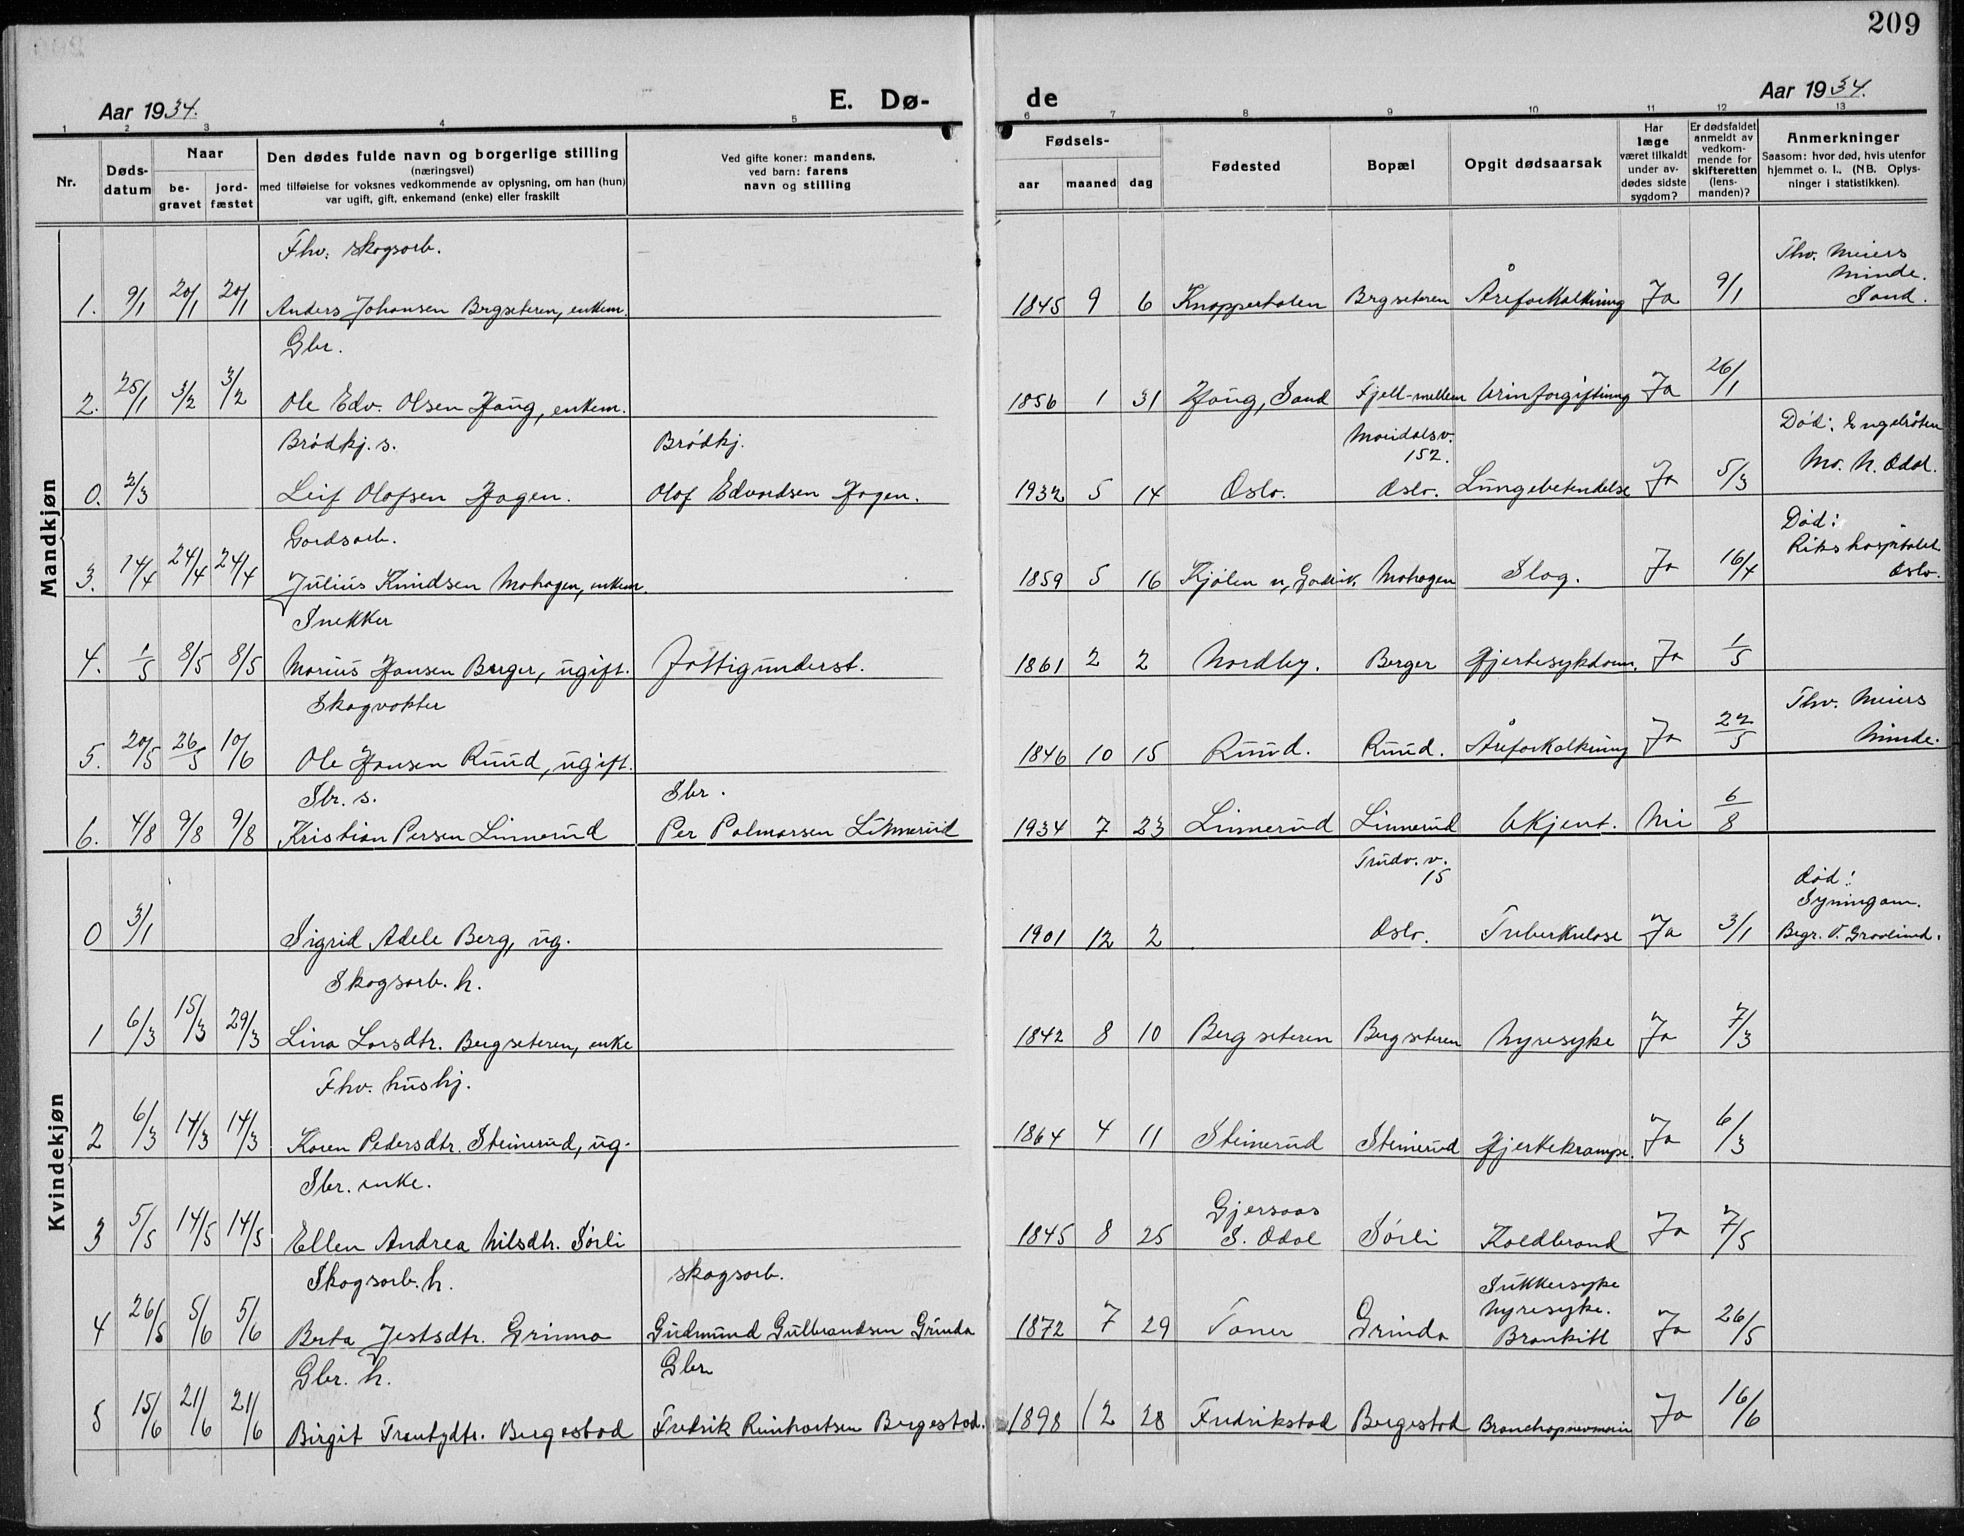 209
Aar 1934.
E. Dø-
de
Aar 1934.
1 2 3 4 5 6 7 8 9 10 11 12 13
Nr.
Døds-
datum
Naar
be-
gravet
jord-
fæstet
Den dødes fulde navn og borgerlige stilling
(næringsvei)
med tilføielse for voksnes vedkommende av oplysning, om han (hun)
var ugift, gift, enkemand (enke) eller fraskilt
Ved gifte koner: mandens,
ved barn: farens
navn og stilling
Fødsels-
aar maaned dag
Fødested
Bopæl
Opgit dødsaarsak
Har
læge
været tilkaldt
under av-
dødes sidste
sygdom?
Er dødsfaldet
anmeldt av
vedkom-
mende for
skifteretten
(lens-
manden)?
Anmerkninger
Saasom: hvor død, hvis utenfor
hjemmet o. l., (NB. Oplys-
ninger i statistikken).
Mandkjøn
Fhv. skogsarb.
Fhv. Meiers
Minde.
Sand.
1. 9/1 20/1 20/1 Anders Johansen Bergseteren, enkem. 1845 9 6 Knappertholen Bergseteren Åreforkalkning Ja 9/1
Gbr.
2. 25/1 3/2 3/2 Ole Edv. Olsen Haug, enkem. 1856 1 31 Haug, Sand Fjell-mellem Urinforgiftning Ja 26/1
Brødkj. s. Brødkj. Maridalsv.
152.
Død: Engelråten
Mo. N. Odal.
0. 2/3 Leif Olafsen Hagen. Olaf Edvardsen Hagen. 1932 5 14 Oslo. Oslo. Lungebetendelse Ja 5/3
Gardsarb.
Død:
Rikshospitalet
Oslo.
3. 14/4 24/4 24/4 Julius Knudsen Mohagen, enkem. 1859 5 16 Kjølen Mohagen Slag. Ja 16/4
Snekker
4. 1/5 8/5 8/5 Marius Hansen Berger, ugift. Fattigunderst. 1861 2 2 Nordby. Berger Hjertesykdom. Ja 1/5
Skogvokter
Fhv. Meiers
Minde.
5. 20/5 26/5 10/6 Ole Hansen Ruud, ugift. 1846 10 15 Ruud. Ruud. Åreforkalkning Ja 22/5
Sbr. s. Sbr.
6. 4/8 9/8 9/8 Kristian Persen Linnerud Per Palmarsen Linnerud 1934 7 23 Linnerud Linnerud Ukjent. Nei 6/8
Kvindekjøn
Trudv. v.
15
død:
Begr. V. Gravlund.
0 3/1 Sigrid Adele Berg, ug. 1901 12 2 Oslo. Tuberkulose Ja 3/1
Skogsarb. h.
1 6/3 15/3 29/3 Lina Larsdtr. Bergseteren, enke 1842 8 10 Bergseteren Bergseteren Nyresyke Ja 7/3
Fhv. hushj.
2 6/3 14/3 14/3 Karen Pedersdtr. Steinerud, ug. 1864 4 11 Steinerud Steinerud Hjertekrampe. Ja 6/3
Sbr. enke.
Gjersaas
3 5/5 14/5 14/5 Ellen Andrea Nilsdtr. Sørli 1845 8 25 S. Odal Sørli Koldbrand Ja 7/5
Skogsarb. h. skogsarb.
Sukkersyke
Nyresyke.
4 26/5 5/6 5/6 Berta Jestsdtr. Grinna Gudmund Gulbrandsen Grinda 1872 7 29 Taner Grinda Bronkitt Ja 26/5
Gbr. h. Gbr
5 15/6 21/6 21/6 Birgit Bergestad Fredrik Reinhartsen Bergestad. 1898 12 28 Fredrikstad Bergestad Bronchopneumoni Ja 16/6